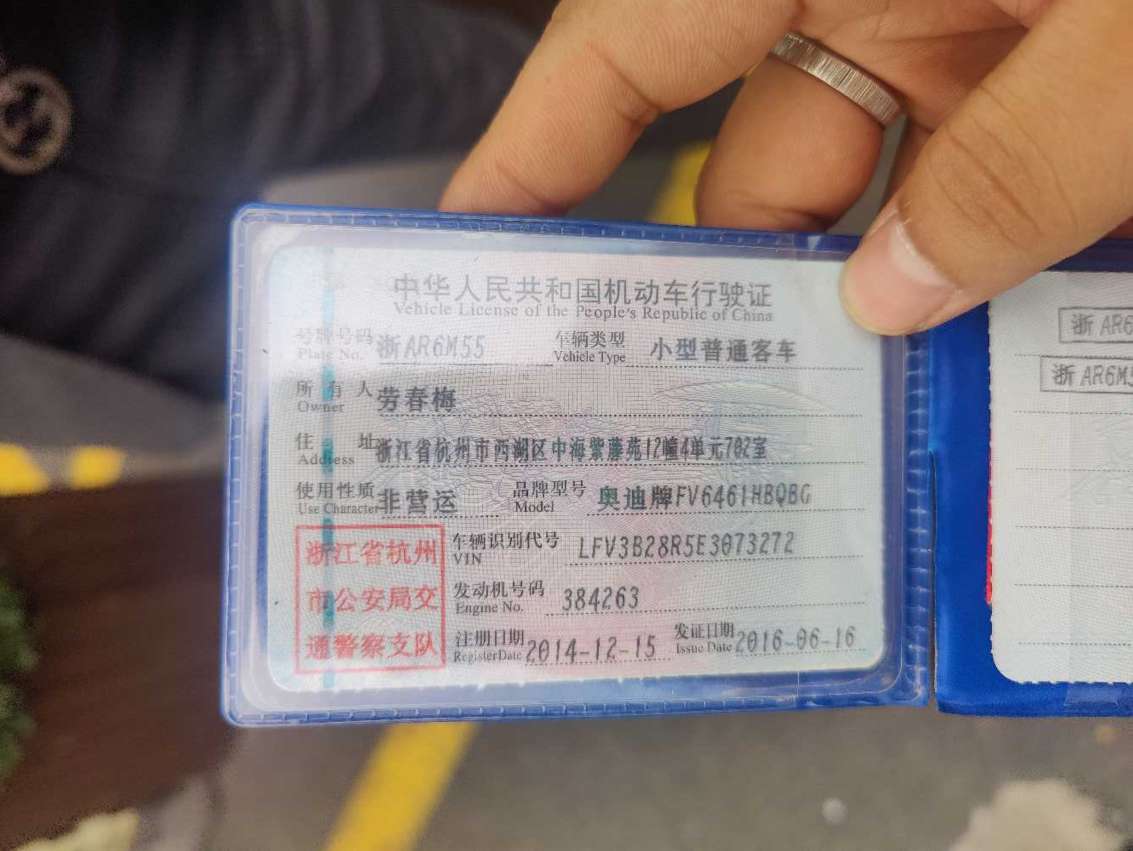 中华人民共和国机动车行驶证
Vehicle License of the People's Republic of China
号牌号码 浙AR6M55 车辆类型 小型普通客车
Plate No. Vehicle Type
所有人 劳春梅
Owner
住址 浙江省杭州市西湖区中海紫藤苑12幢4单元702室
Address
使用性质 非营运 品牌型号 奥迪牌FV6461HBQBG
Use Character Model
浙江省杭州
市公安局交
通警察支队
车辆识别代号 LFV3B28R5E3073272
VIN
发动机号码 384263
Engine No.
注册日期 2014-12-15 发证日期 2016-06-16
Register Date Issue Date
浙AR6
浙AR6M5